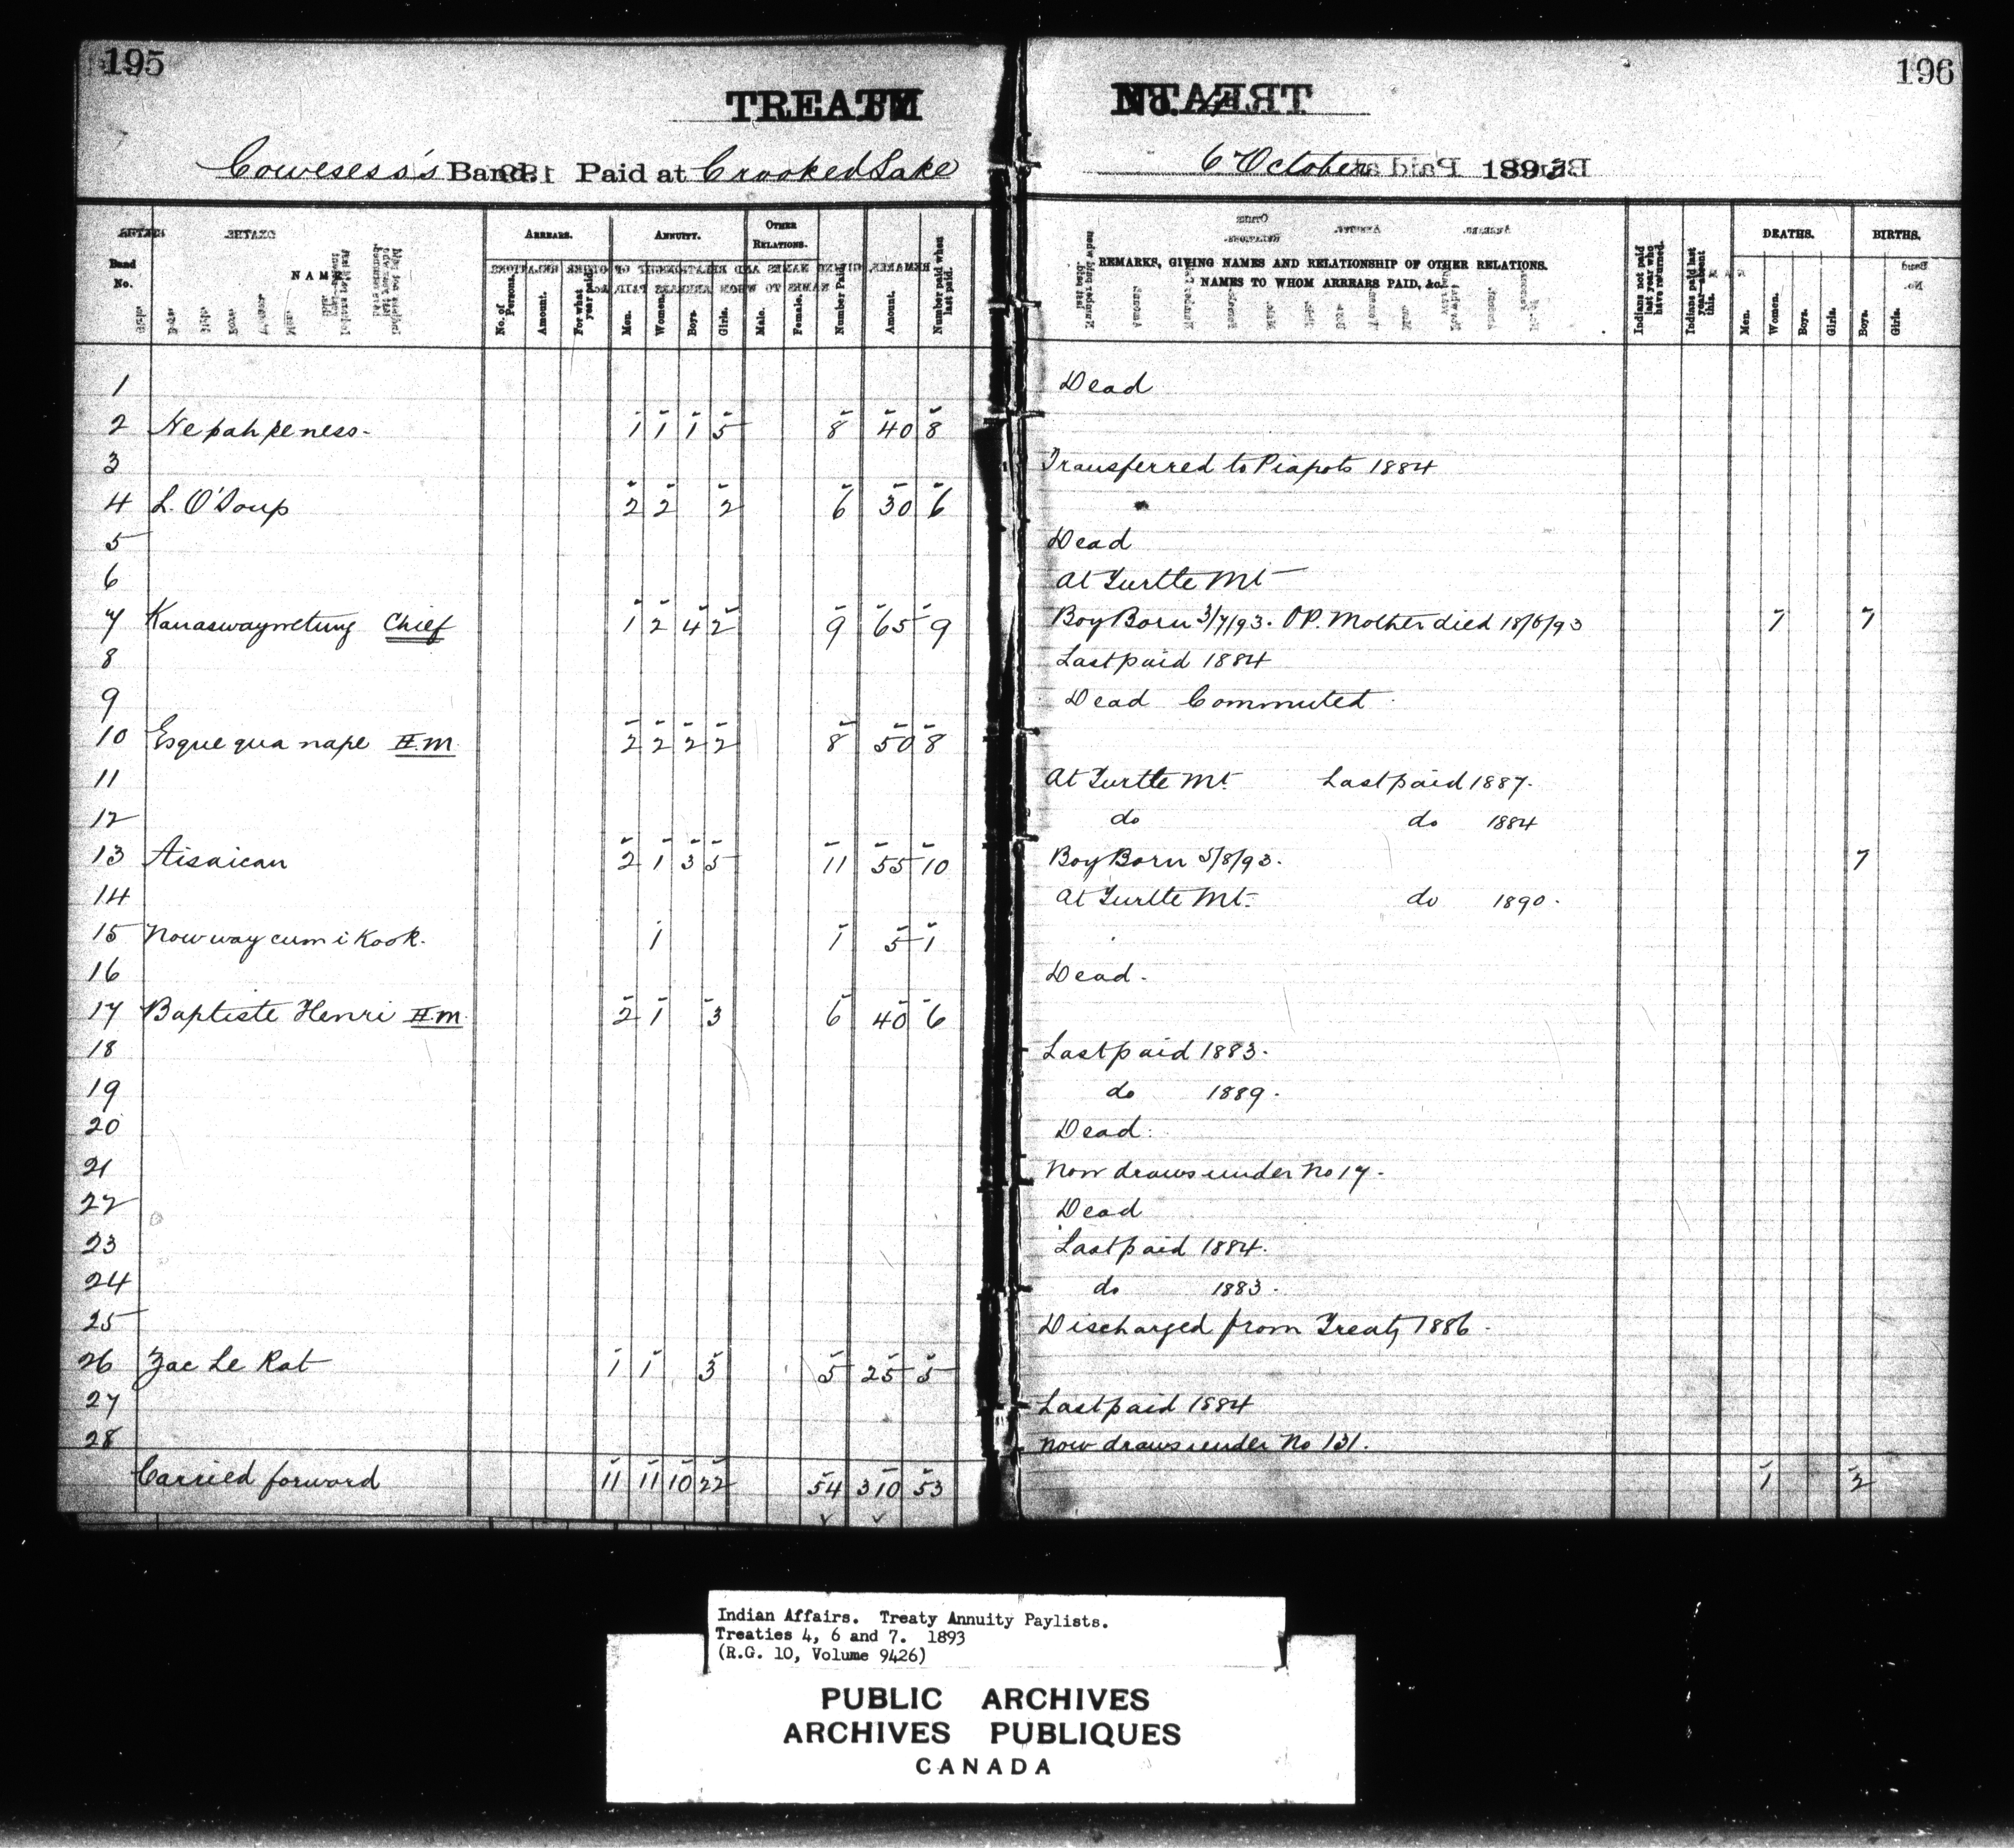 195
196
TREATY
No. 4
Coweses's Band. Paid at Crooked Lake
6 October 1893
Band No.
NAME
ARREARS.
No. of Persons.
Amount.
For what year paid.
ANNUITY.
Men.
Women.
Boys.
Girls.
OTHER RELATIONS.
Male.
Female.
Number Paid.
Amount.
Number paid when last paid.
REMARKS, GIVING NAMES AND RELATIONSHIP OF OTHER RELATIONS.
NAMES TO WHOM ARREARS PAID, &c.
Indians not paid last year who have returned.
Indians paid last year—absent this.
DEATHS.
Men.
Women.
Boys.
Girls.
BIRTHS.
Boys.
Girls.
1 Dead
2 Nepahpeness. 1 1 1 5 8 40 8
3 Transferred to Piapots 1884
4 L. O'Soup 2 2 2 6 30 6
5 Dead
6 At Turtle Mt
7 Kanaswaywetung Chief 1 2 4 2 9 65 9 Boy Born 3/7/93. OP. Mother died 18/6/93 1 1
8 Last paid 1884
9 Dead Commuted
10 Esque qua nape H.m. 2 2 2 2 8 50 8
11 At Turtle Mt. Last paid 1887.
12 do do 1884
13 Aisaican 2 1 3 5 11 55 10 Boy Born 5/8/93. 1
14 At Turtle Mt. do 1890.
15 Nowway cum i Kook. 1 1 5 1
16 Dead.
17 Baptiste Henri H.m. 2 1 3 6 40 6
18 Last paid 1883.
19 do 1889.
20 Dead.
21 Now draws under No 17.
22 Dead
23 Last paid 1884.
24 do 1883.
25 Discharged from Treaty 1886.
26 Zac Le Rat 1 1 3 5 25 5
27 Last paid 1884
28 Now draws under No 131.
Carried forward 11 11 10 22 54 310 53 1 2
Indian Affairs. Treaty Annuity Paylists.
Treaties 4, 6 and 7. 1893
(R.G. 10, Volume 9426)
PUBLIC ARCHIVES
ARCHIVES PUBLIQUES
CANADA